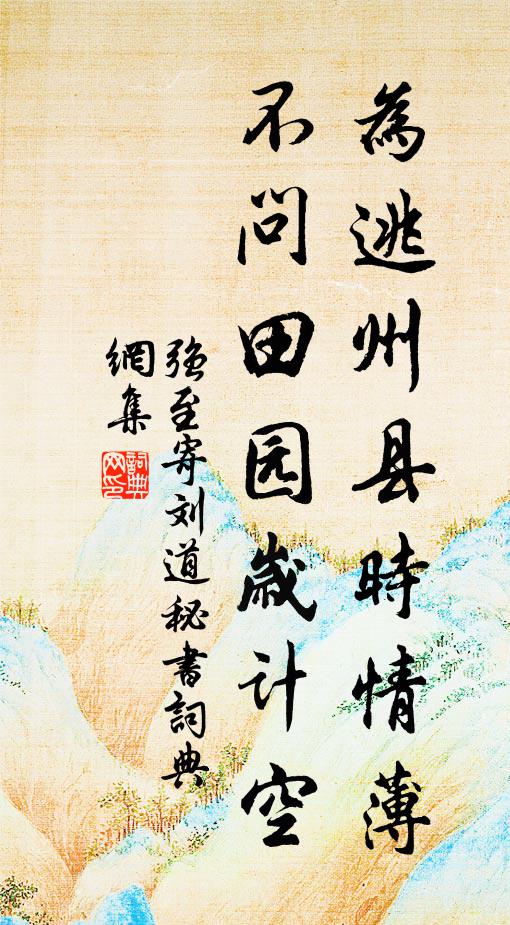 為逃州县時情薄
不问田园歲计空
强至寄刘道秘書詞典
網集
詞典
网印